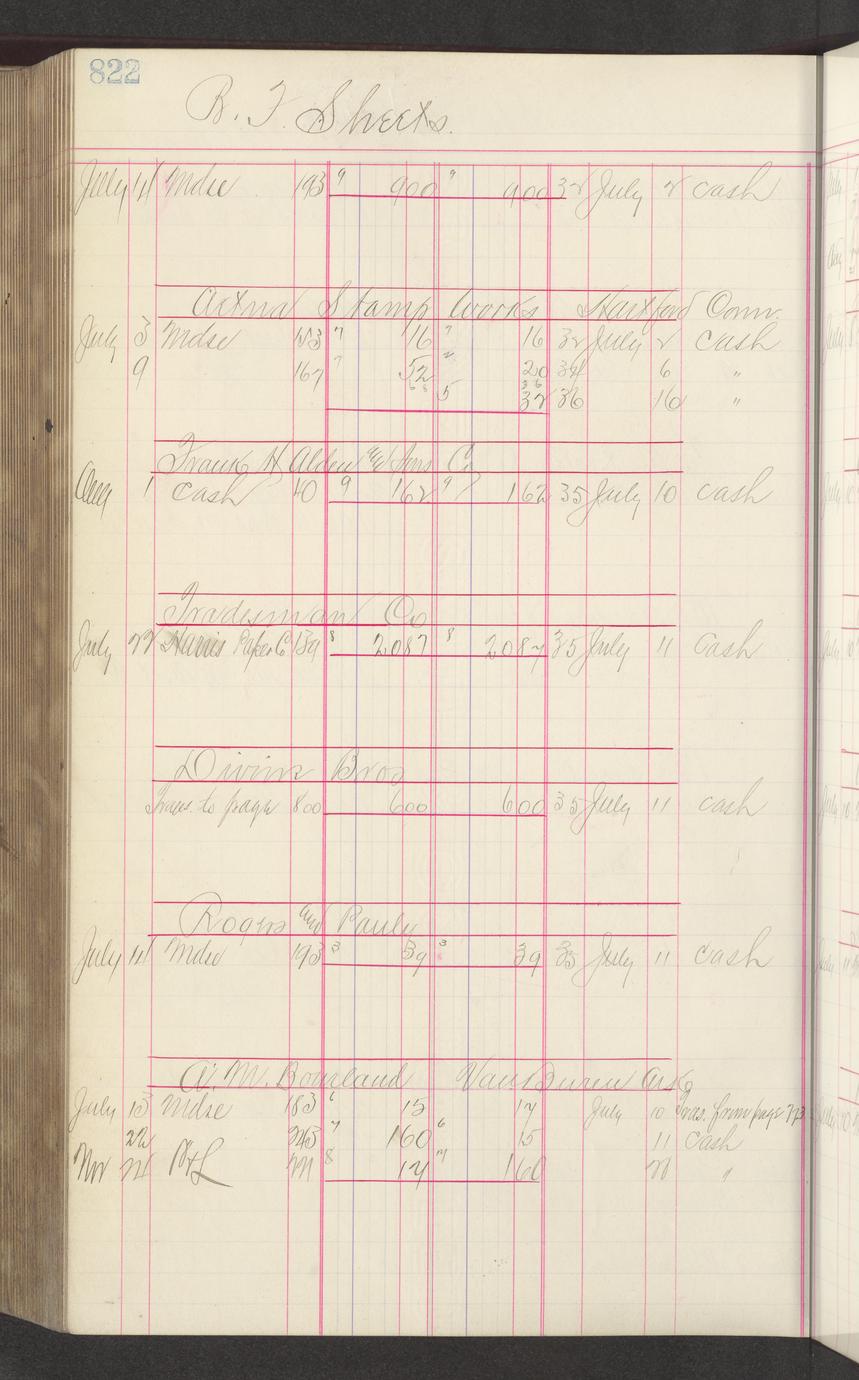 822
B. F. Sheets.
July 14 Mdse 193 9 900 9 900 32 July 2 cash
Aetna Stamp Works Hartford Conn.
July 3 Mdse 153 7 16 7 16 32 July 2 cash
9 167 7 52 20 34 6 "
5 32 36 16 "
Frank H Alden and Sons Co
Aug 1 cash 40 9 162 9 162 35 July 10 cash
Tradesman Co
July 22 Harris Paper Co 139 8 2087 8 2087 35 July 11 Cash
Divine Bros
Trans. to page 800 600 600 35 July 11 cash
Rogers and Pauly
July 14 Mdse 193 3 39 3 39 35 July 11 cash
A. M. Bourland Van Buren Ark
July 13 Mdse 183 6 15 17 July 10 Tras. from page 773
22 243 7 160 6 15 11 cash
Nov 24 P&L 8 17 7 160 "